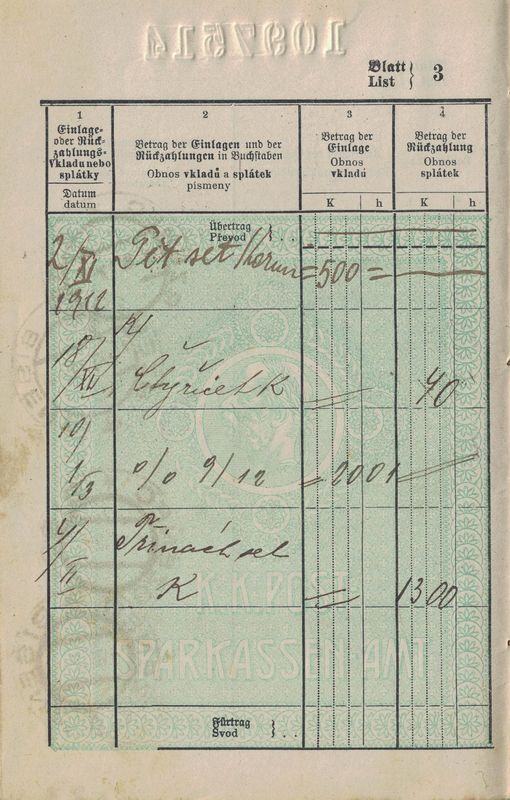 1097514
Blatt
List } 3
1
Einlage-
oder Rück-
zahlungs-
Vkladu nebo
splátky
Datum
datum
2
Betrag der Einlagen und der
Rückzahlungen in Buchstaben
Obnos vkladů a splátek
písmeny
3
Betrag der
Einlage
Obnos
vkladů
K h
4
Betrag der
Rückzahlung
Obnos
splátek
K h
Übertrag
Převod } . .
2/XI Pět set Korun = 500 =
1912
18/XII
Čtyřicet K = 40
10/1 13 o/o 9/12 = 2001
4/II Třináct set
K = 1300
K. K. POST
SPARKASSEN-AMT
Fürtrag
Svod } . .